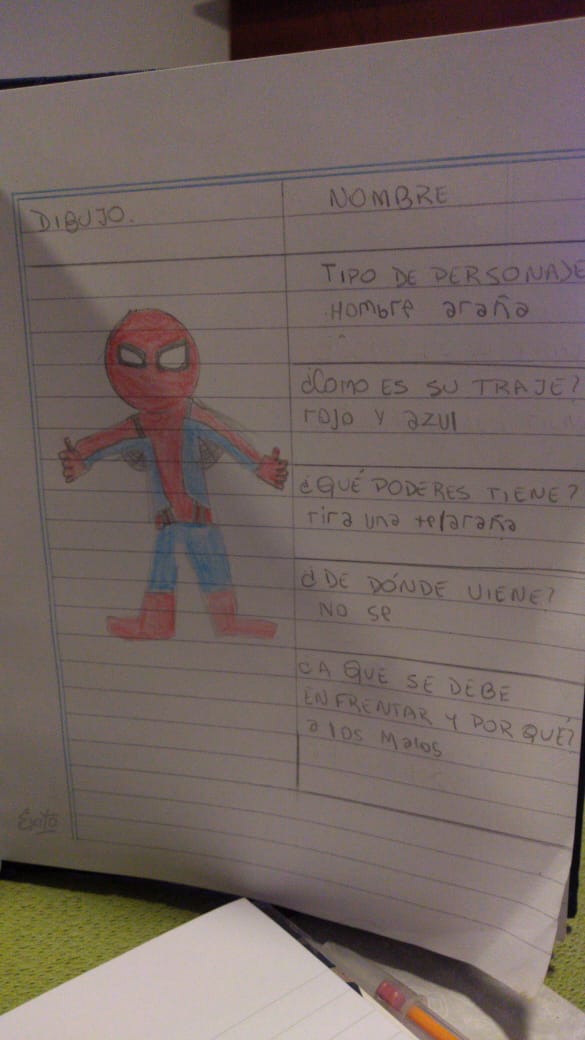 DIBUJO.
NOMBRE
TIPO DE PERSONAJE
Hombre araña
¿COMO ES SU TRAJE?
rojo y azul
¿QUÉ PODERES TIENE?
Tira una telaraña
¿DE DÓNDE VIENE?
NO se
¿A QUE SE DEBE
ENFRENTAR Y POR QUÉ?
a los Malos
Éxito